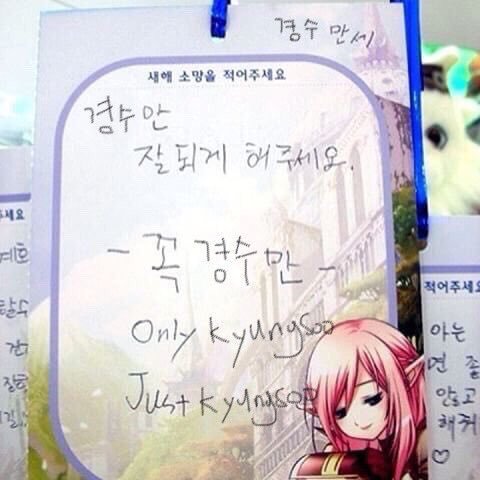 경수 만세
새해 소망을 적어주세요
경수만
잘되게 해주세요.
- 꼭 경수만 -
Only kyungsoo
Just kyungsoo
주세요
적어주세요
아는
면 좋
않고
해줘
♡